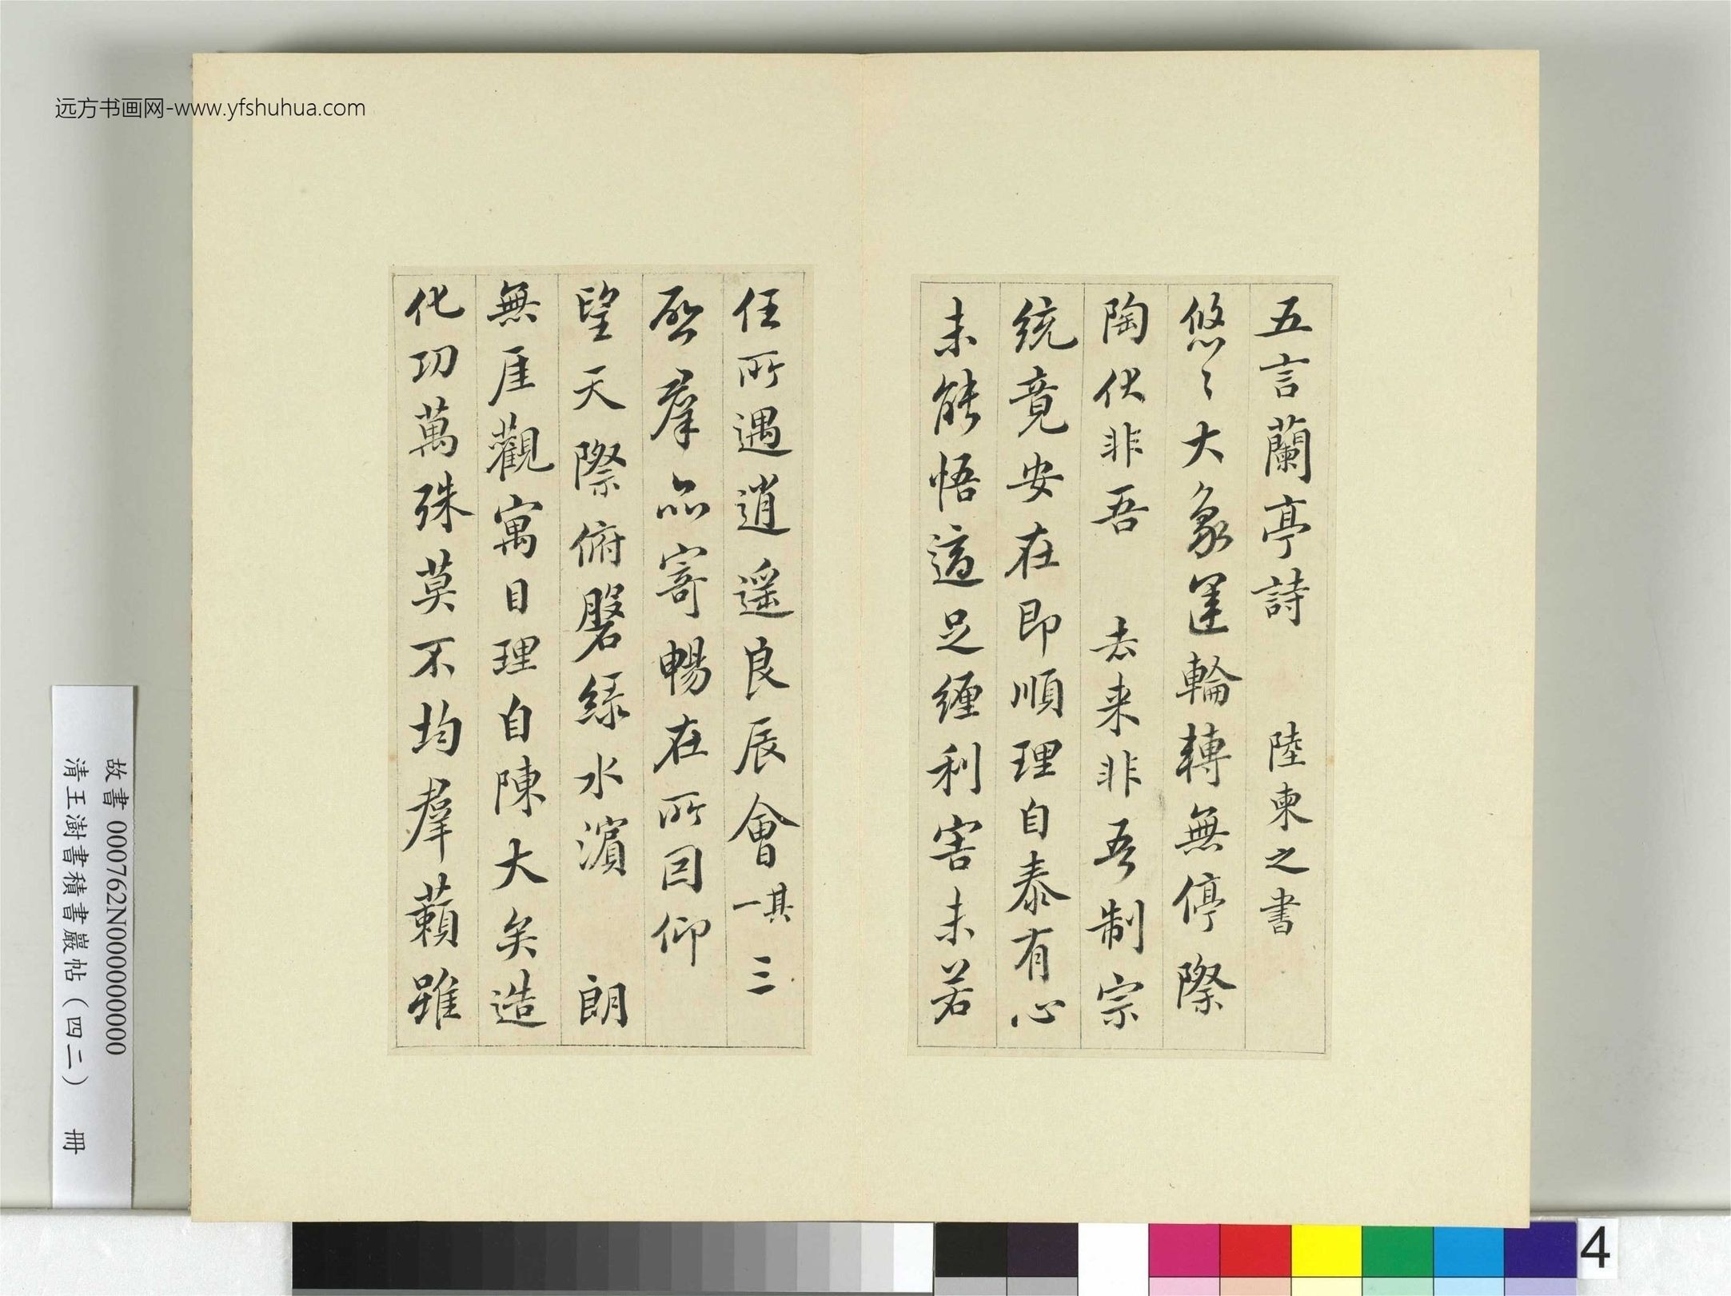 远方书画网-www.yfshuhua.com
五言蘭亭詩 陸柬之書
悠〻大象運輪轉無停際
陶化非吾 去来非吾制宗
統竟安在即順理自泰有心
未能悟適足纏利害未若
任所遇逍遥良辰會其一 三
羣品寄暢在所因仰
望天際俯磐緑水濱 朗
無厓觀寓目理自陳大矣造
化功萬殊莫不均羣籟雖
故書 000762N000000000
清王澍書積書巖帖（四二） 冊
4